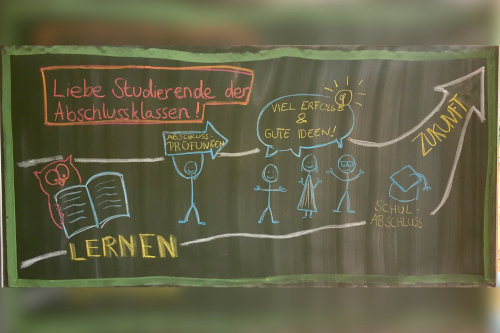 Liebe Studierende der
Abschlussklassen!
ABSCHLUSS-
PRÜFUNGEN
VIEL ERFOLG
&
GUTE IDEEN!
ZUKUNFT
LERNEN
SCHUL-
ABSCHLUSS